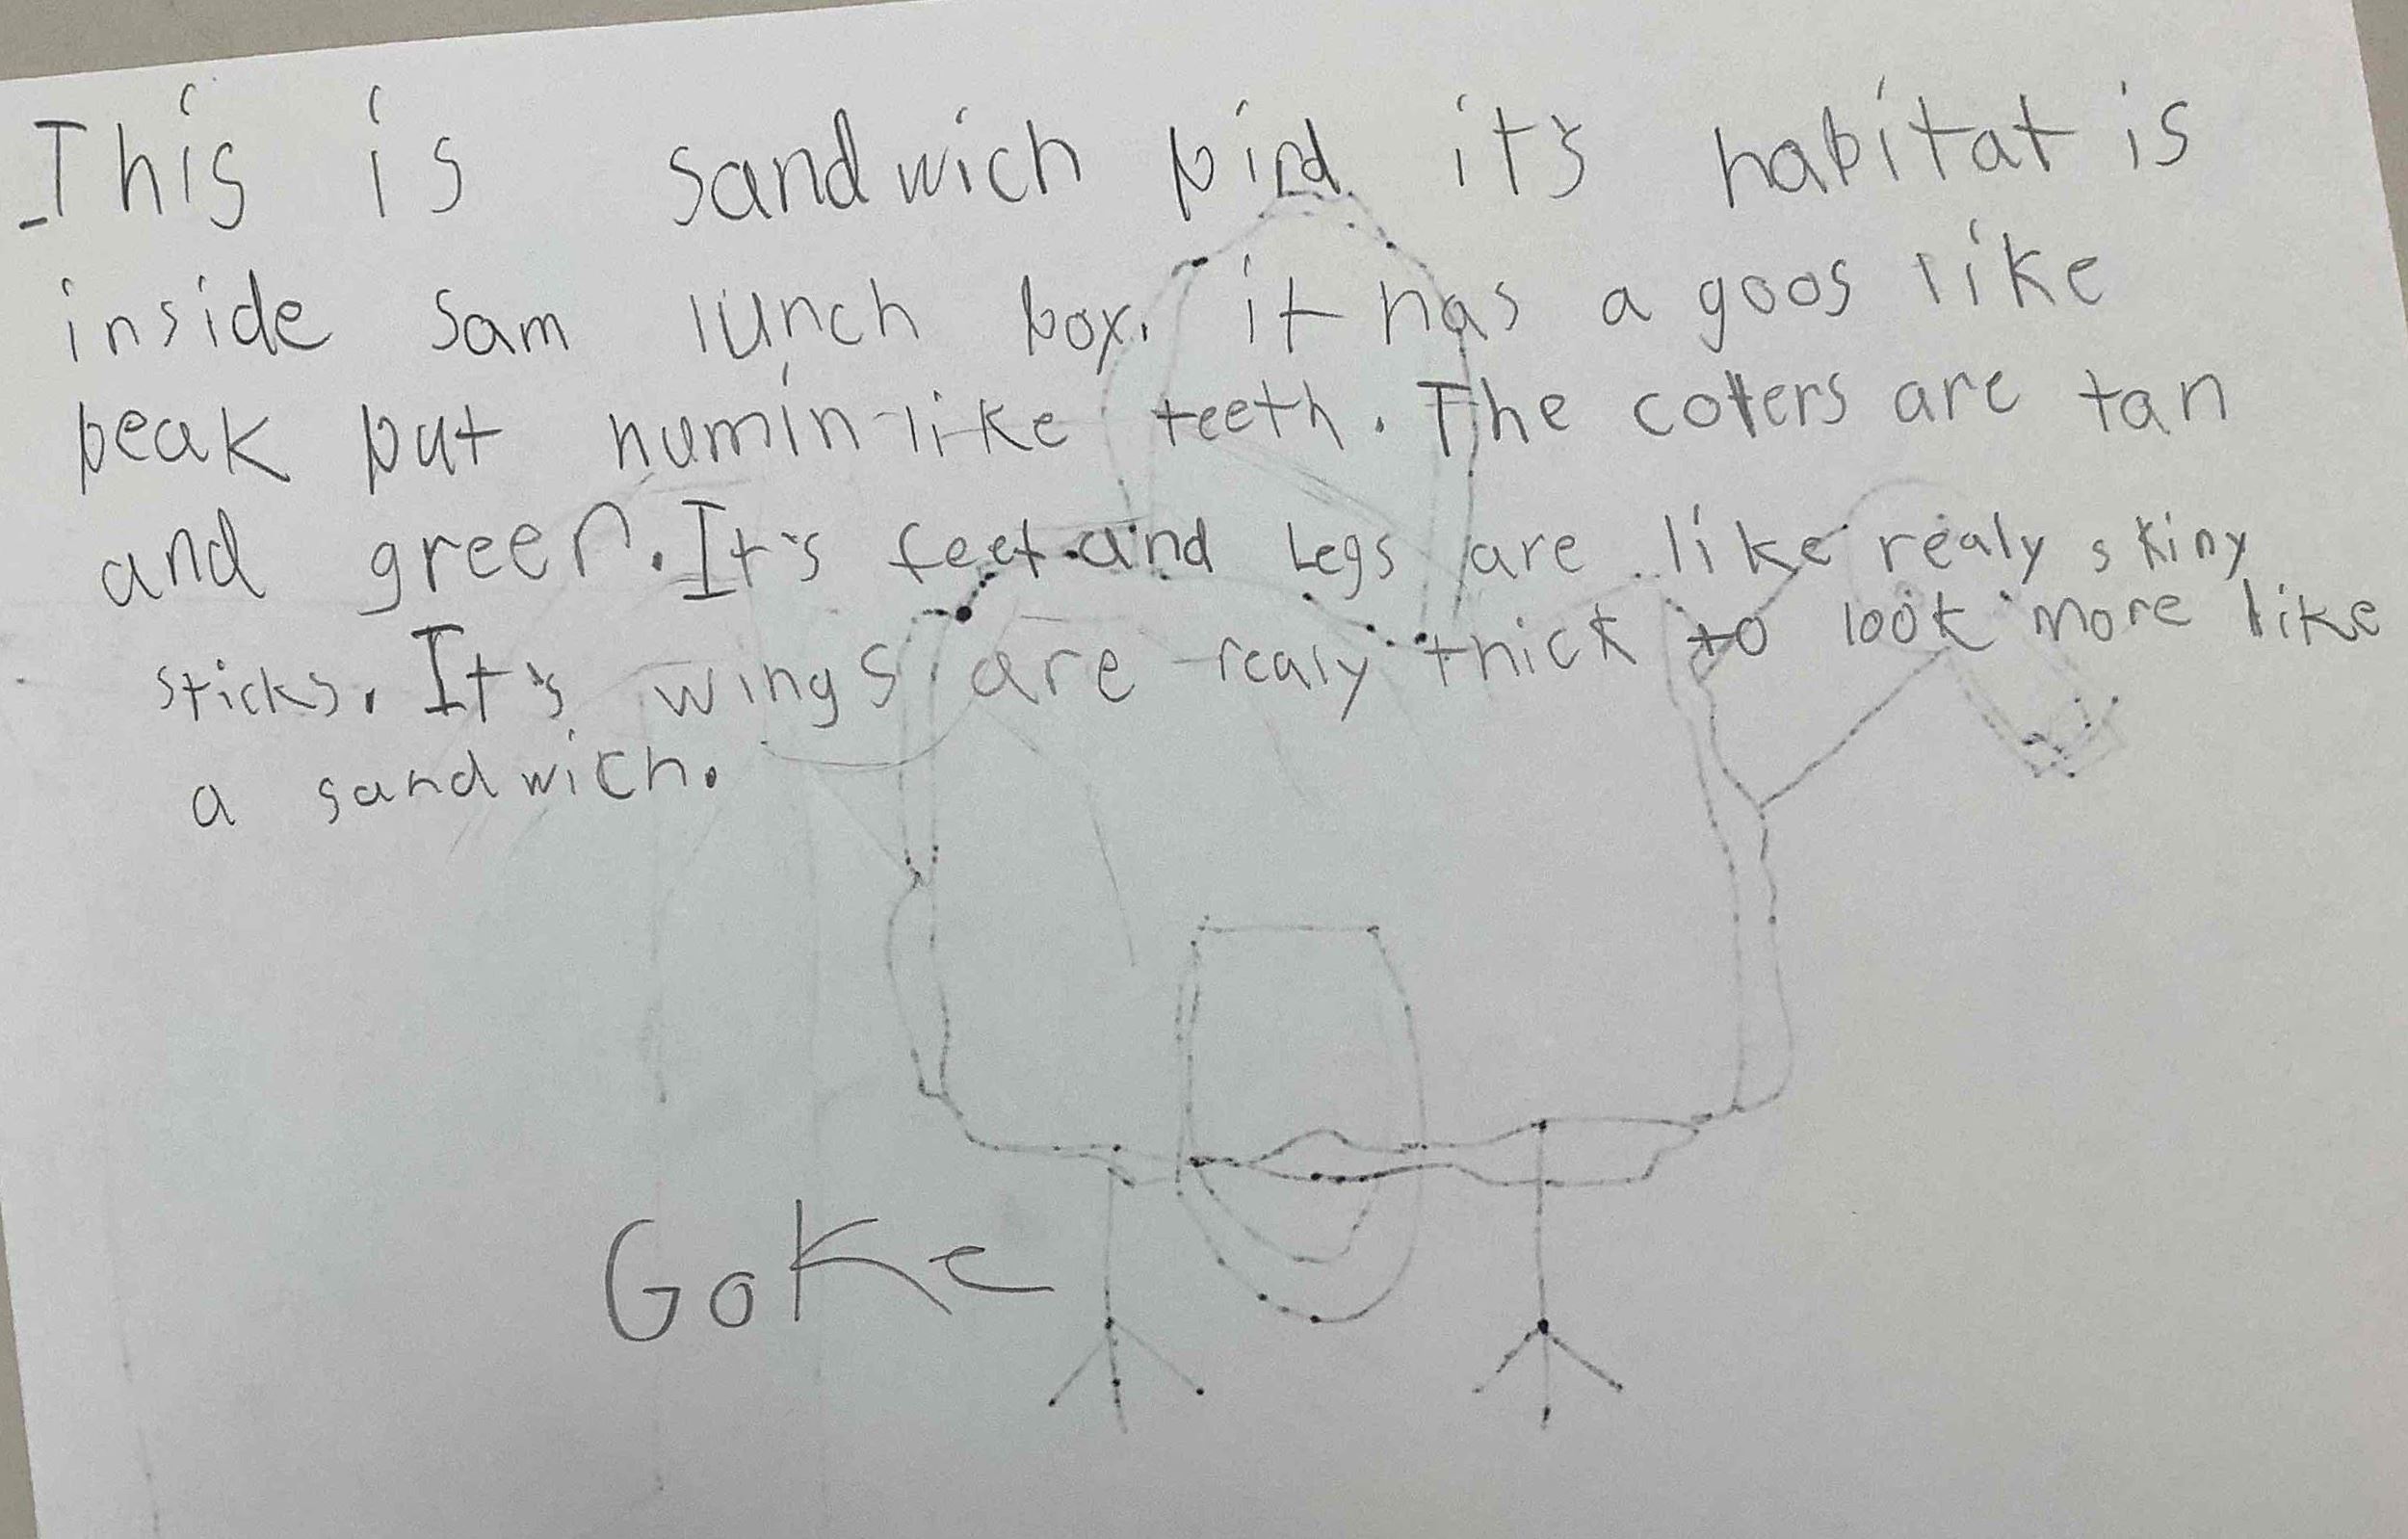 This is sandwich bird. it's habitat is
inside Sam lunch box. it has a goos like
beak but humin-like teeth. The collers are tan
and green. It's feet and Legs are like realy skiny
sticks. It's wings are realy thick to look more like
a sandwich.
GoKe